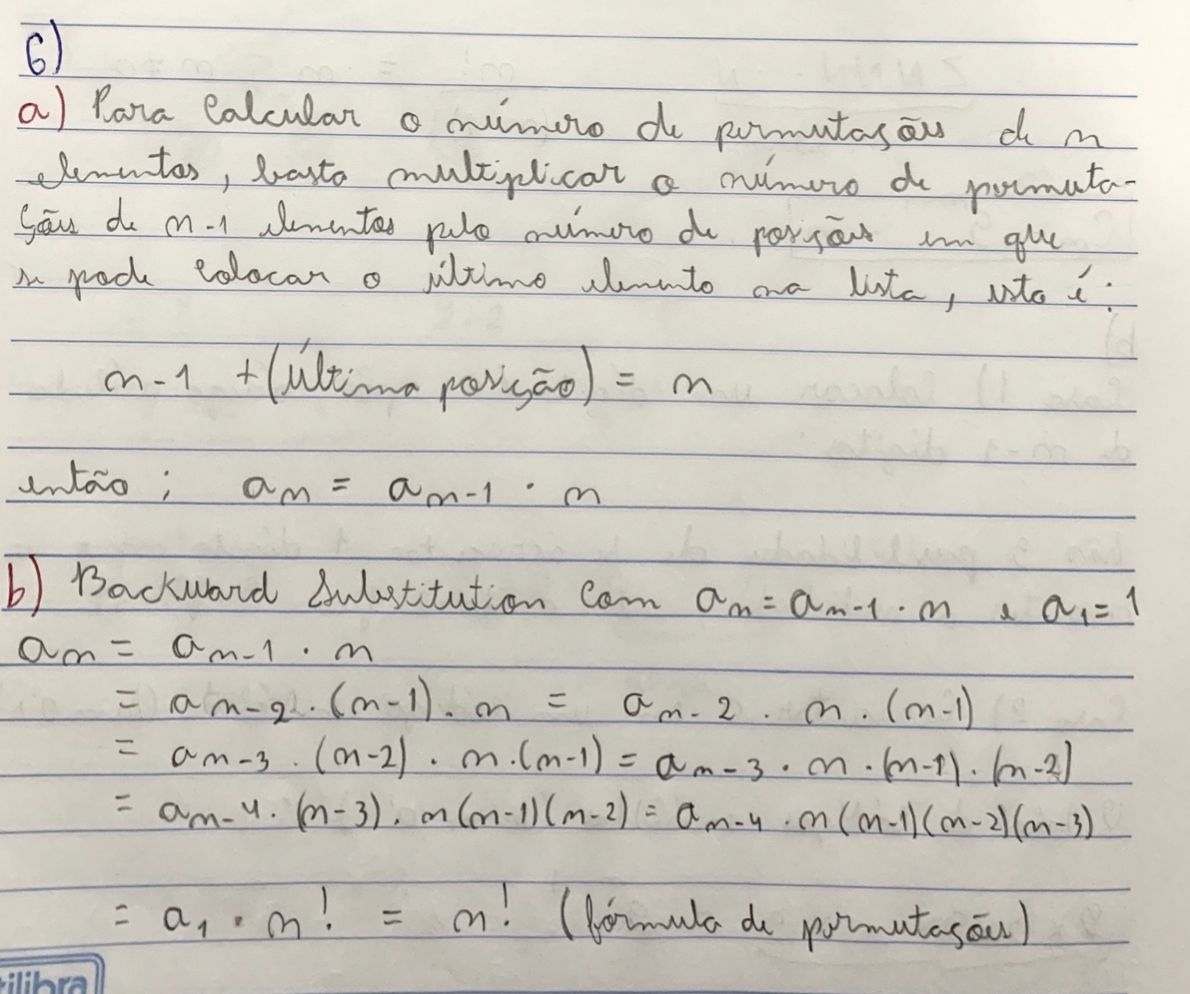 6)
a) Para Calcular o número de permutações de n
elementos, basta multiplicar o número de permuta-
ções de n-1 elementos pelo número de posições em que
se pode colocar o último elemento na lista, isto é:
n-1 + (última posição) = n
então; aₙ = aₙ₋₁ · n
b) Backward Substitution com aₙ = aₙ₋₁ · n e a₁ = 1
aₙ = aₙ₋₁ · n
= aₙ₋₂ · (n-1) · n = aₙ₋₂ · n · (n-1)
= aₙ₋₃ · (n-2) · n · (n-1) = aₙ₋₃ · n · (n-1) · (n-2)
= aₙ₋₄ · (n-3) · n(n-1)(n-2) = aₙ₋₄ · n(n-1)(n-2)(n-3)
= a₁ · n! = n! (fórmula de permutações)
tilibra